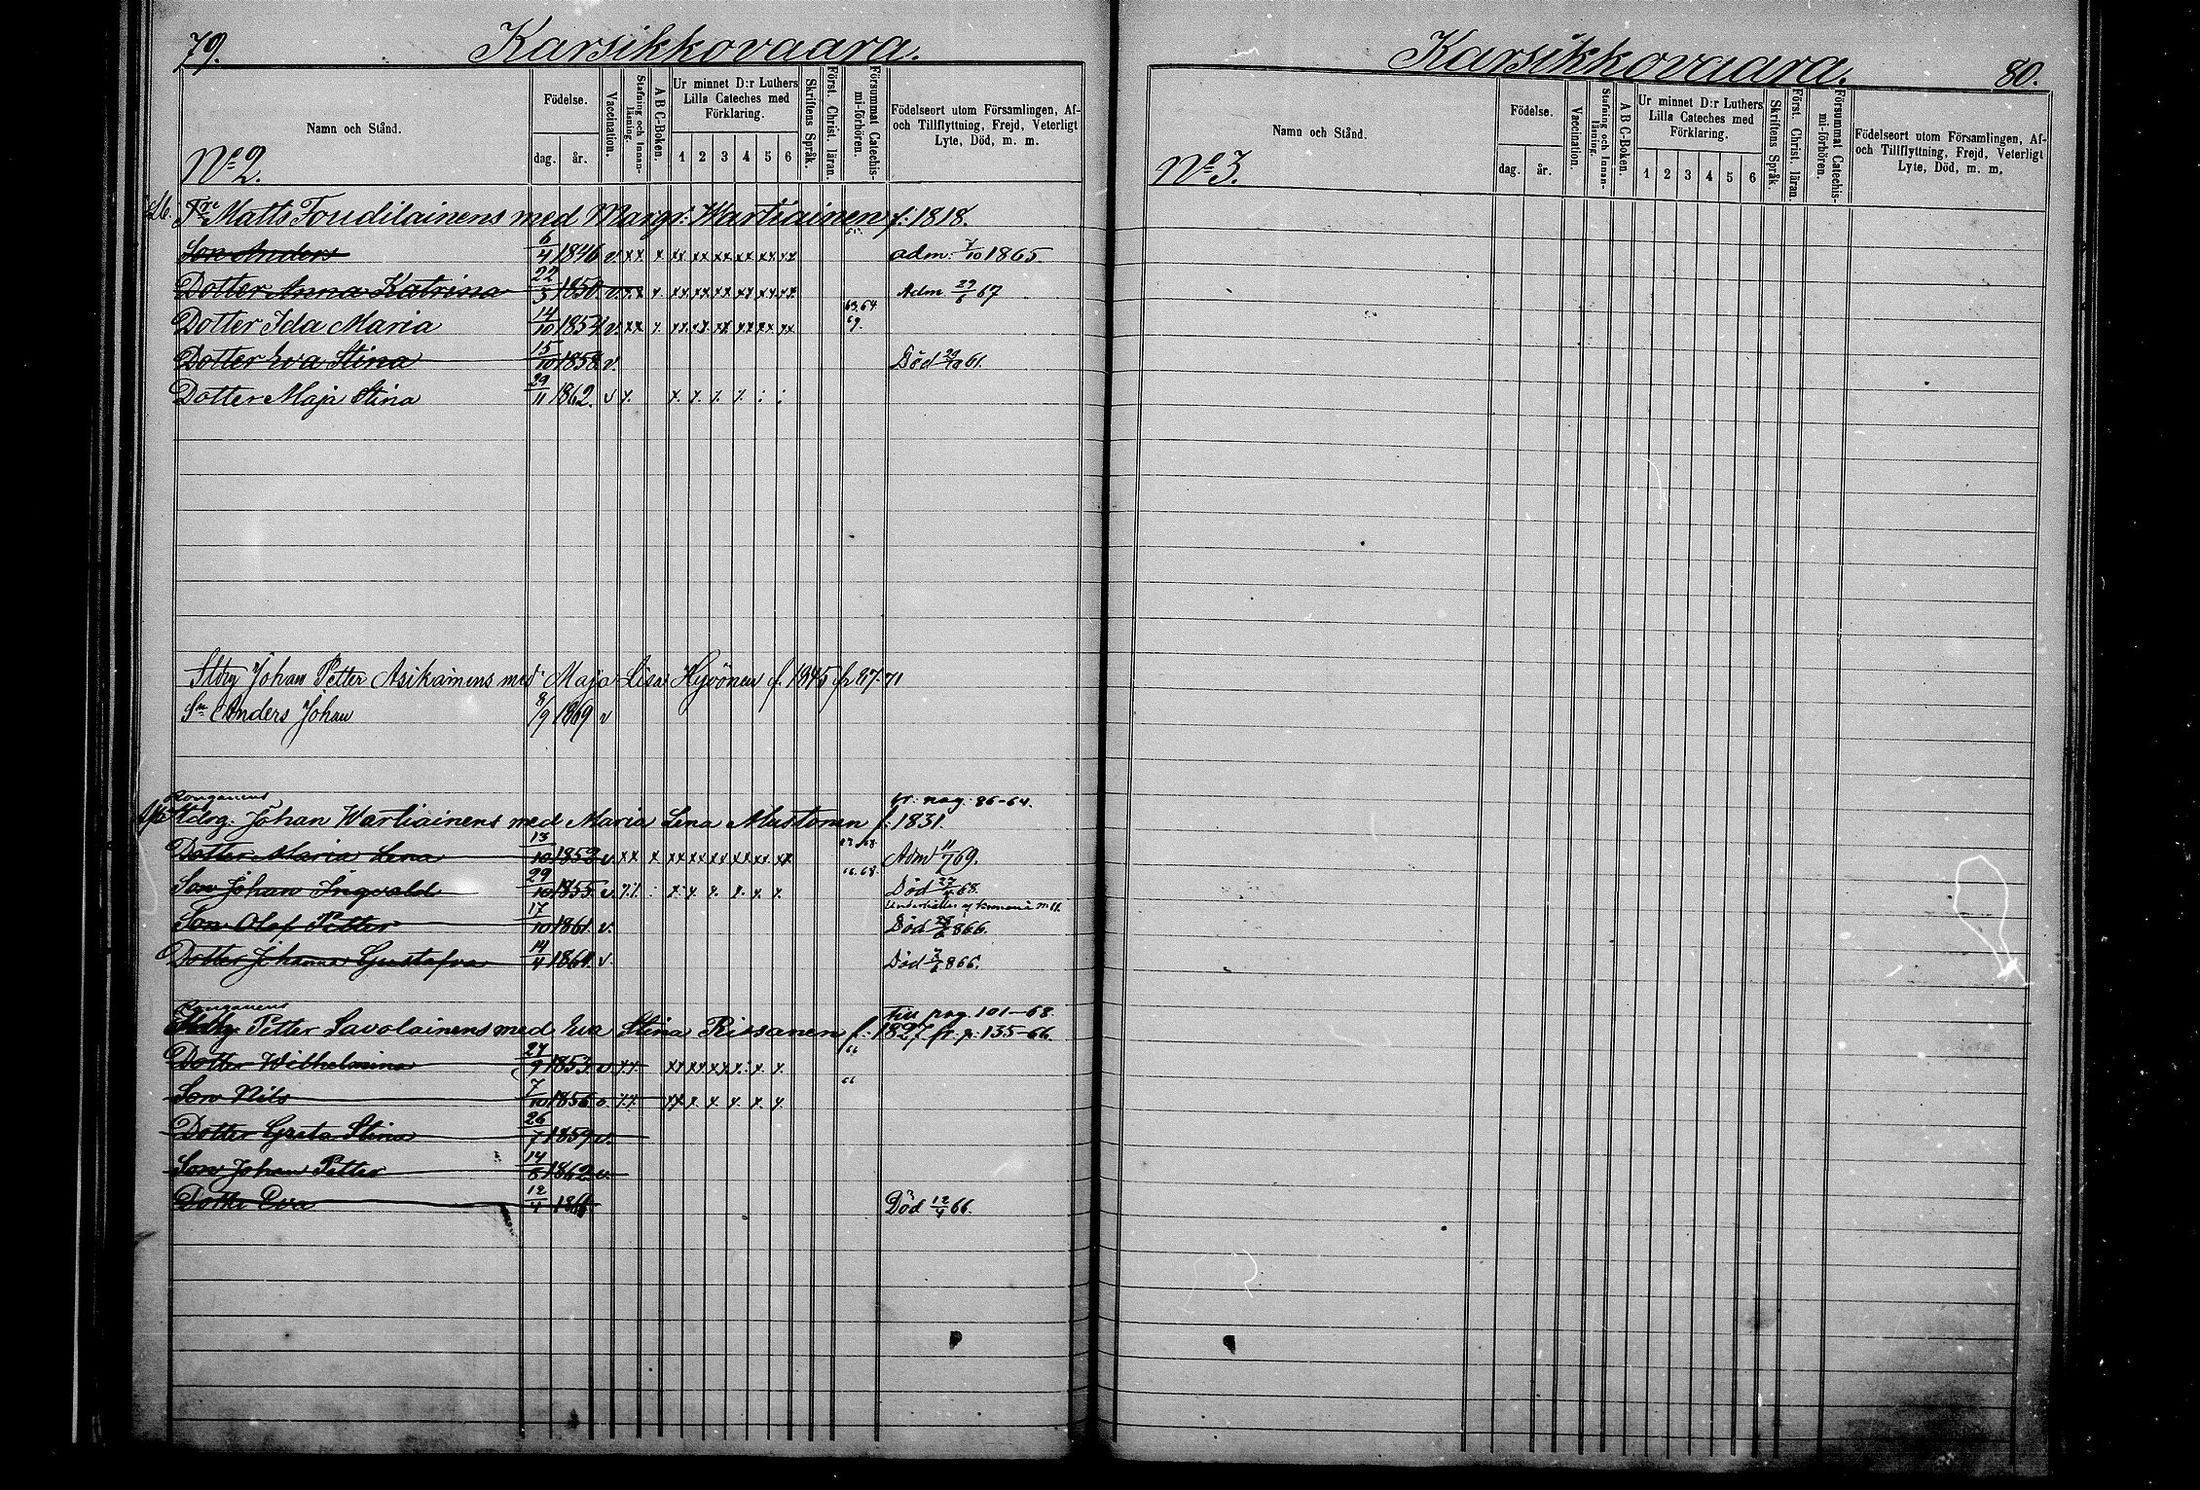 79. Karsikkovaara.
Namn och Stånd.
Födelse.
dag. år.
Vaccination.
Stafning och Innan-läsning.
A B C-Boken.
Ur minnet D:r Luthers Lilla Cateches med Förklaring.
1 2 3 4 5 6
Skriftens Språk.
Först. Christ. läran.
Försummat Catechis-mi-förhören.
Födelseort utom Församlingen, Af- och Tillflyttning, Frejd, Veterligt Lyte, Död, m. m.
No 2.
Matts Toudilainens med Margr: Wartiainen f: 1818.
Son Anders 6/4 1846 v xx x xx xx xx xx xx xx adm: 7/10 1865
Dotter Anna Katrina 22/3 1850 v. xx x. xx xx xx xx xx xx Adm 29/6 67
Dotter Ida Maria 14/10 1854 v. xx x. xx xx xx xx xx xx 63.64 69. 
Dotter Eva Stina 15/10 1858 v. Död 61.
Dotter Maja Stina 29/11 1862. v x. x. x. x. x. : :
Johan Petter Asikainens med Maja Lisa Hyvönen f. 1845 fr 87-71
Sn Anders Johan 8/9 1869 v
fr: pag: 86-64.
Johan Wartiainens med Maria Lena Mustonen f: 1831.
Dotter Maria Lena 13/10 1852 v. xx x xx xx xx xx xx xx Adm 11/7 69.
Son Johan Ingvald 29/10 1855. v. x.x. : x. x. x. x. x. x. 66.68. Död 68.
Son Olof Petter 17/10 1861. v. Död 866.
Dotter Johanna Gustafva 14/4 1864. v Död 866.
Till pag. 101-68.
Petter Savolainens med Eva Stina Rissanen f: 1827. fr: p: 135-66.
Dotter Wilhelmina 27/9 1853. v x.x. xx xx xx x: x. x. 66
Son Nils 7/10 1856. v. x.x. xx x. x. x. x. x. 66
Dotter Greta Stina 26/7 1859 v.
Son Johan Petter 14/6 1862 v.
Dotter Eva 12/4 1866 Död 12/4 66.
Karsikkovaara. 80.
Namn och Stånd.
Födelse.
dag. år.
Vaccination.
Stafning och Innan-läsning.
A B C-Boken.
Ur minnet D:r Luthers Lilla Cateches med Förklaring.
1 2 3 4 5 6
Skriftens Språk.
Först. Christ. läran.
Försummat Catechis-mi-förhören.
Födelseort utom Församlingen, Af- och Tillflyttning, Frejd, Veterligt Lyte, Död, m. m.
No 3.